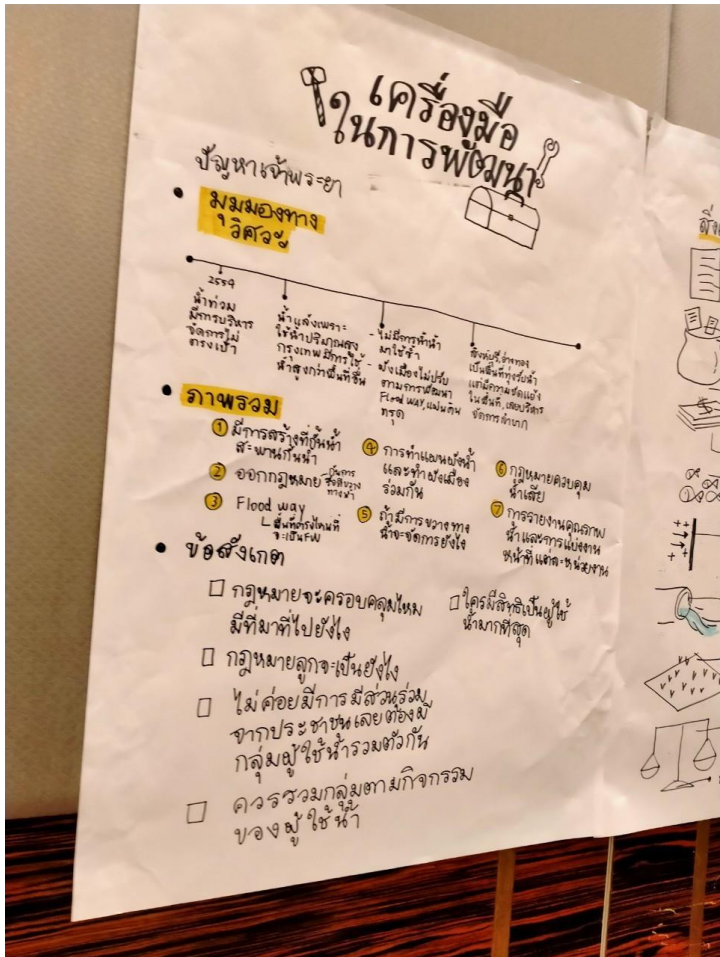 เครื่องมือ
ในการพัฒนา
ปัญหาเจ้าพระยา
มุมมองทาง
วิศวะ
2554
น้ำท่วม
มีการบริหาร
จัดการไม่
ตรงเป้า
น้ำแล้งเพราะ
ใช้น้ำปริมาณสูง
กรุงเทพมีการใช้
น้ำสูงกว่าพื้นที่อื่น
- ไม่มีการทำน้ำ
มาใช้ซ้ำ
- ผังเมืองไม่ปรับ
ตามการพัฒนา
Flood way, แผ่นดิน
ทรุด
สิงห์บุรี, อ่างทอง
เป็นพื้นที่ทุ่งรับน้ำ
แต่มีความขัดแย้ง
ในพื้นที่, เลยบริหาร
จัดการลำบาก
ภาพรวม
① มีการสร้างที่กั้นน้ำ
สะพานกั้นน้ำ
② ออกกฎหมาย
ทางน้ำ
③ Flood way
พื้นที่ตรงไหนที่
จะเป็นFW
④ การทำแผนผังน้ำ
และทำผังเมือง
ร่วมกัน
⑤ ถ้ามีการขวางทาง
น้ำจะจัดการยังไง
⑥ กฎหมายควบคุม
น้ำเสีย
⑦ การรายงานคุณภาพ
น้ำและการแบ่งงาน
หน้าที่แต่ละหน่วยงาน
ข้อสังเกต
กฎหมายจะครอบคลุมไหม
มีที่มาที่ไปยังไง
กฎหมายลูกจะเป็นยังไง
ไม่ค่อยมีการมีส่วนร่วม
จากประชาชนเลยต้องมี
กลุ่มผู้ใช้น้ำรวมตัวกัน
ควรรวมกลุ่มตามกิจกรรม
ของผู้ใช้น้ำ
ใครมีสิทธิเป็นผู้ใช้
น้ำมากที่สุด